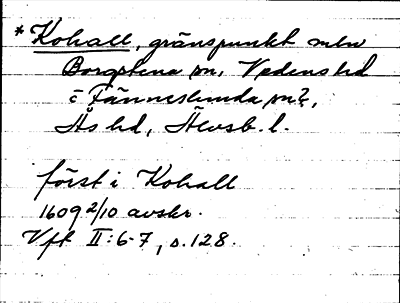 * Kohall, gränspunkt mln
Borgstena sn, Vedens hd
i Fänneslunda sn?,
Ås hd, Älvsb. l.
först i Kohall
1609 2/10 avskr.
Vft II:6-7, s. 128.